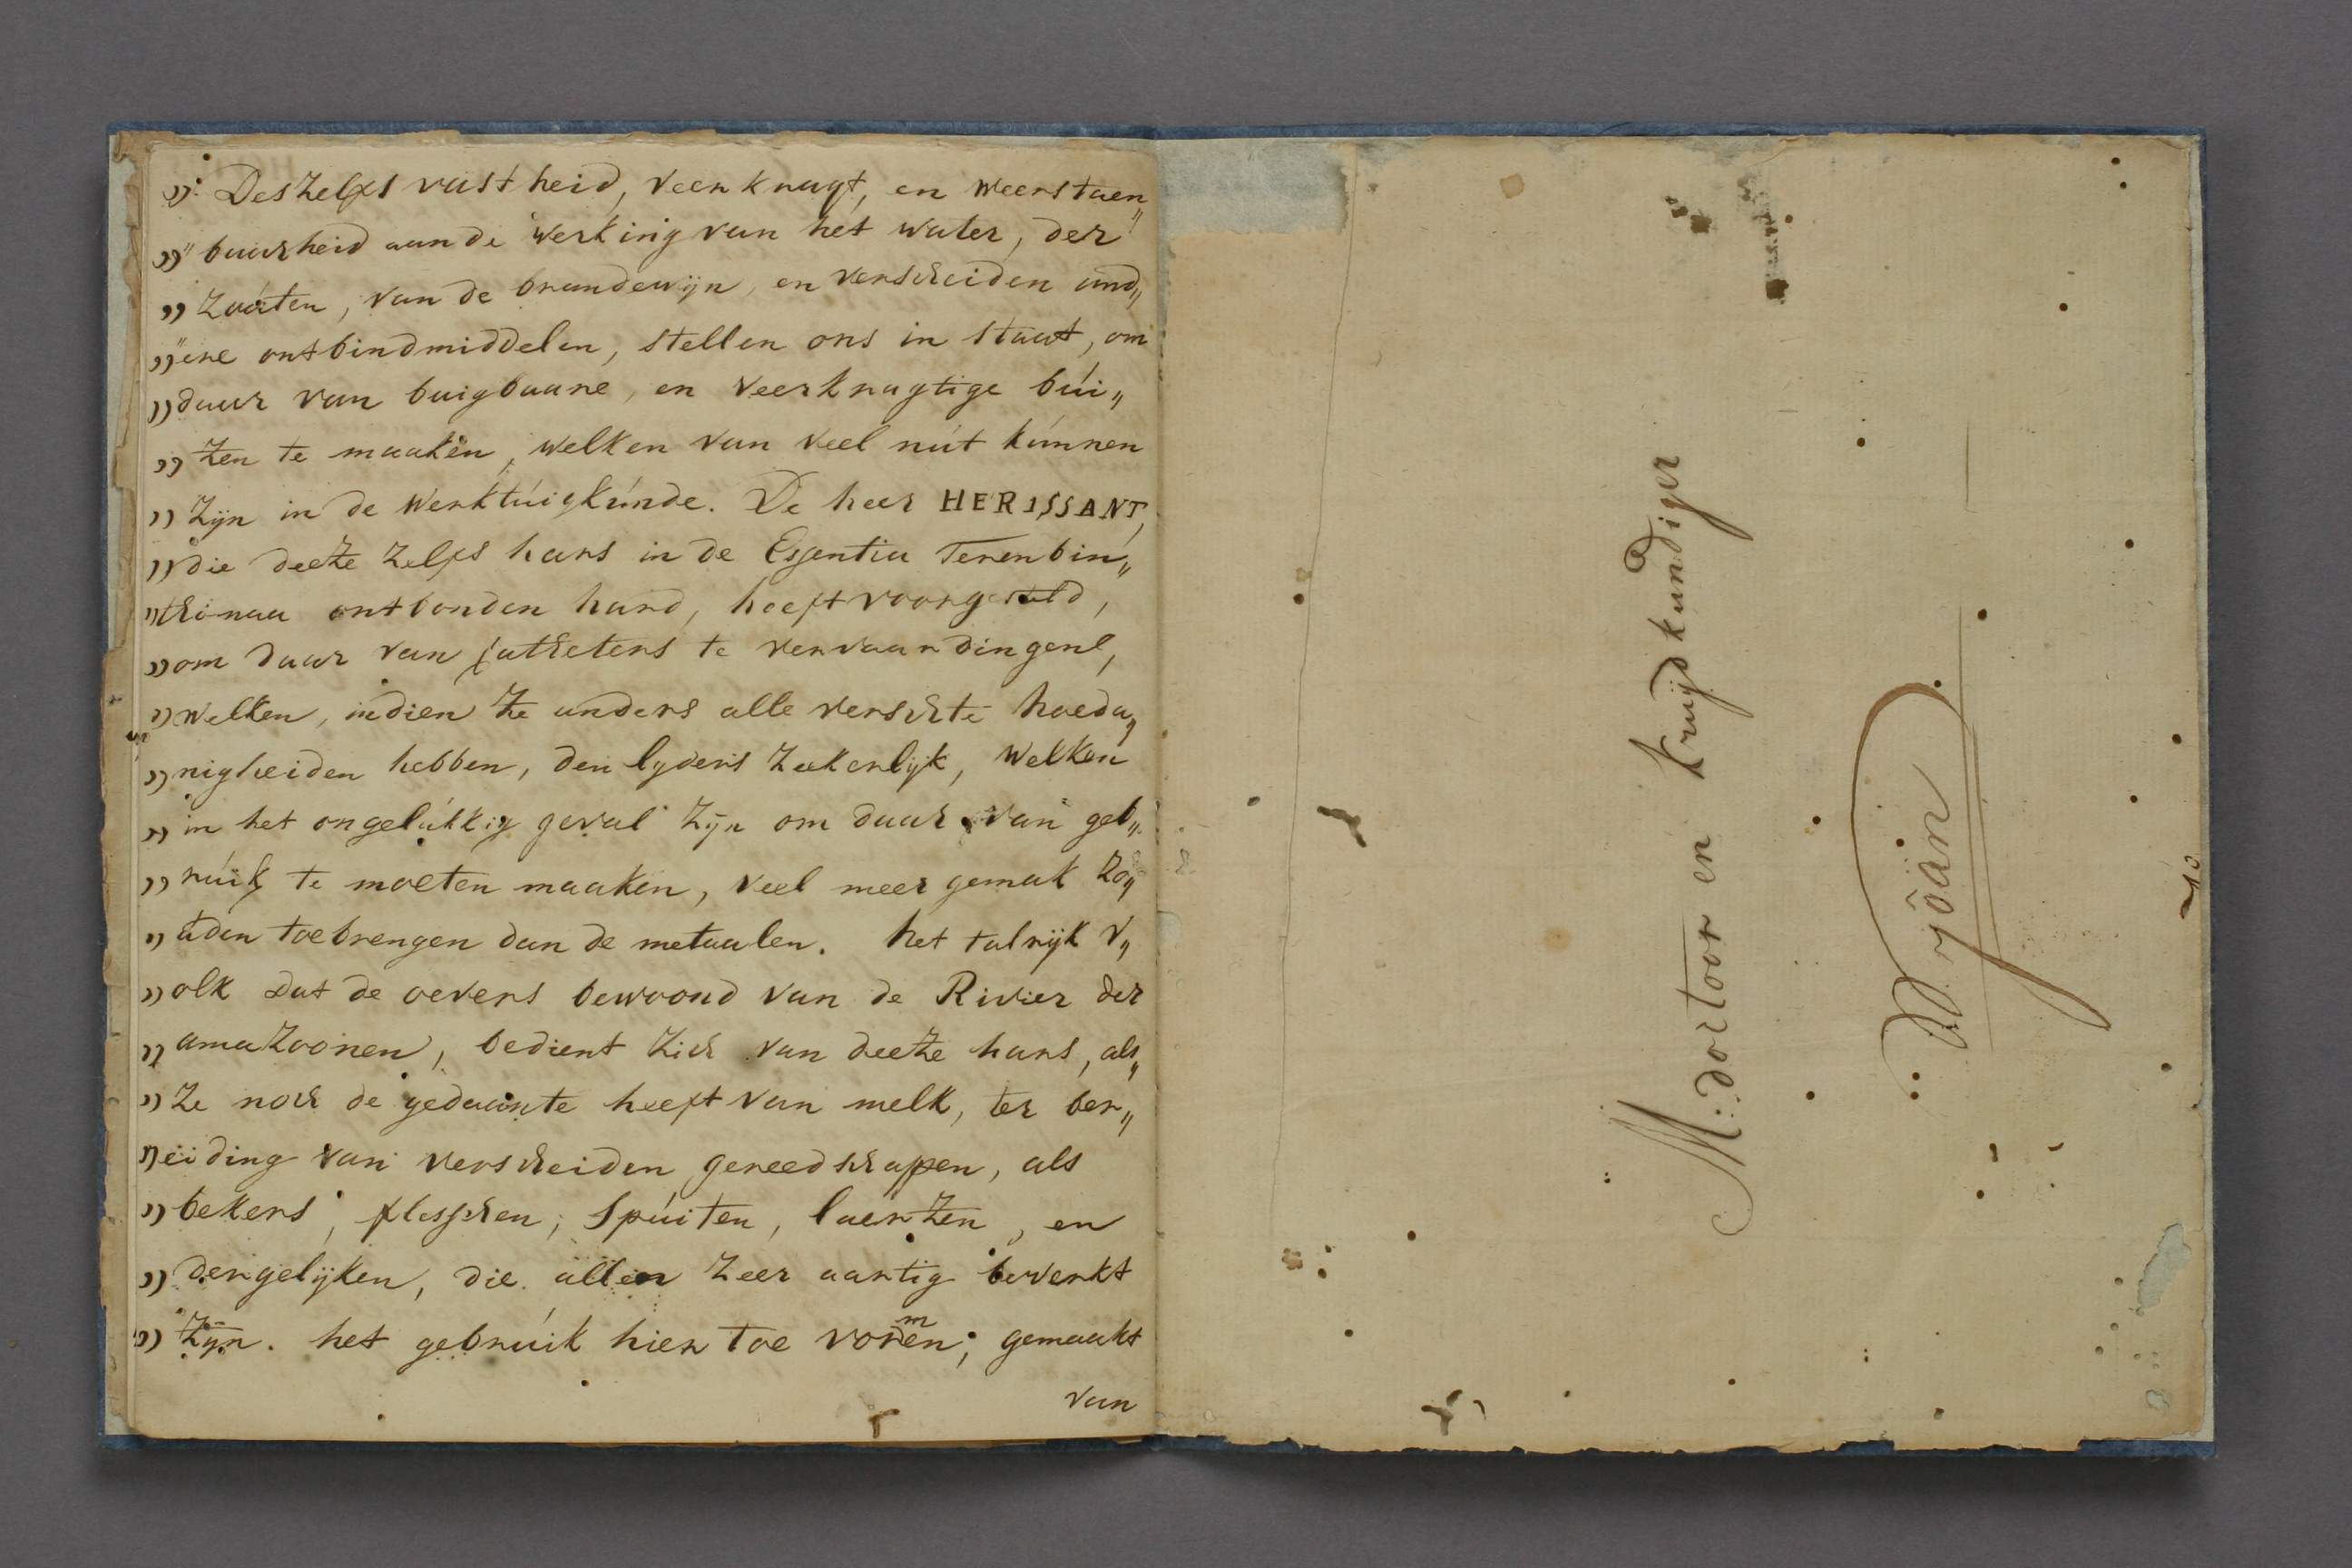 „ Deszelfs vastheid, veerkragt, en weerstaen„
„ "baarheid aan de werking van het water, der
„ zoúten, van de brandewijn, en verscheiden and„
„ "ere ontbindmiddelen, stellen ons in staat, om
„ daar van buigbaare, en veerkragtige búi„
„ zen te maaken, welken van veel nút kúnnen
„ zijn in de werktúigkúnde. De heer HERISSANT,
„ die deeze zelfs hars in de Essentia Terenbin„
„ thinaa ontbonden hard, heeft voorgesteld,
„ om daar van Catheters te vervaardingenl,
„ welken, indien ze anders alle verschte hoeda„
„ nigheiden hebben, den lyders zeekerlijk, welken
„ in het ongelúkkig geval zijn om daar van geb„
„ rúik te moeten maaken, veel meer gemak zo„
„ úden toebrengen dan de metaalen. het talrijk v„
„ olk dat de oevers bewoond van de Rivier der
„ amazoonen, bedient zich van deeze hars, als„
„ ze noch de gedaante heeft van melk, ter ber„
„ eiding van verscheiden gereedschappen, als
„ bekers, flesschen, spúiten, laerzen, en
„ dergelijken, die allen zeer aartig bewerkt
„ zijn. het gebrúik hier toe vormen, gemaakt
van
M: doctoor en kruijdkundiger
D Yöän